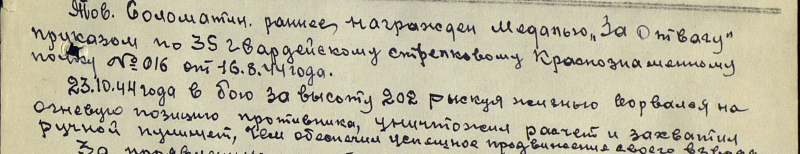 Тов. Соломатин. раннее, награжден Медалью „За Отвагу"
приказом по 35 гвардейскому стрелковому Краснознаменному
полку № 016 от 16.8.44 года.
23.10.44 года в бою за высоту 202 рискуя жизнью ворвался на
огневую позицию противника, уничтожил расчет и захватил
ручной пулимет, чем обеспечил успешное продвижение своего взвода
За